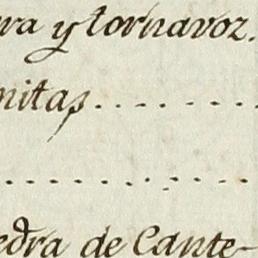 ra y tornavoz.
nitas..........
..........
edra de Cante-